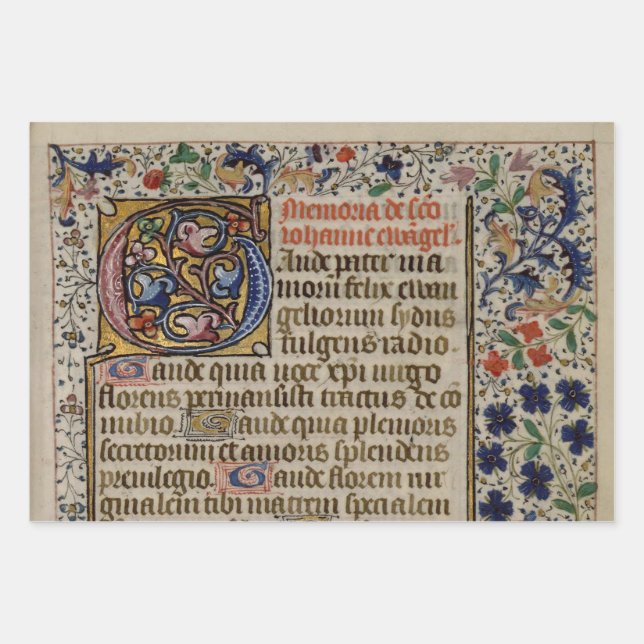 Memoria de sco
iohanne ewãgel.
GAude pater uia
morũ felix ewan
geliorum sydus
fulgens radio
Gaude quia uoce xpi uirgo
florens permansisti tractus de co
nubio Gaude qua plenioris
secretorum et amoris splendens
preuilegio Gaude florem uir
ginalem tibi matrem specialem